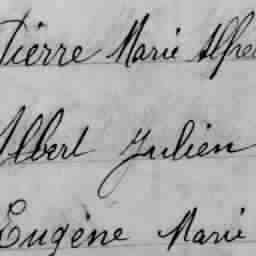 Pierre Marie Alfre
Albert Julien
Eugène Marie